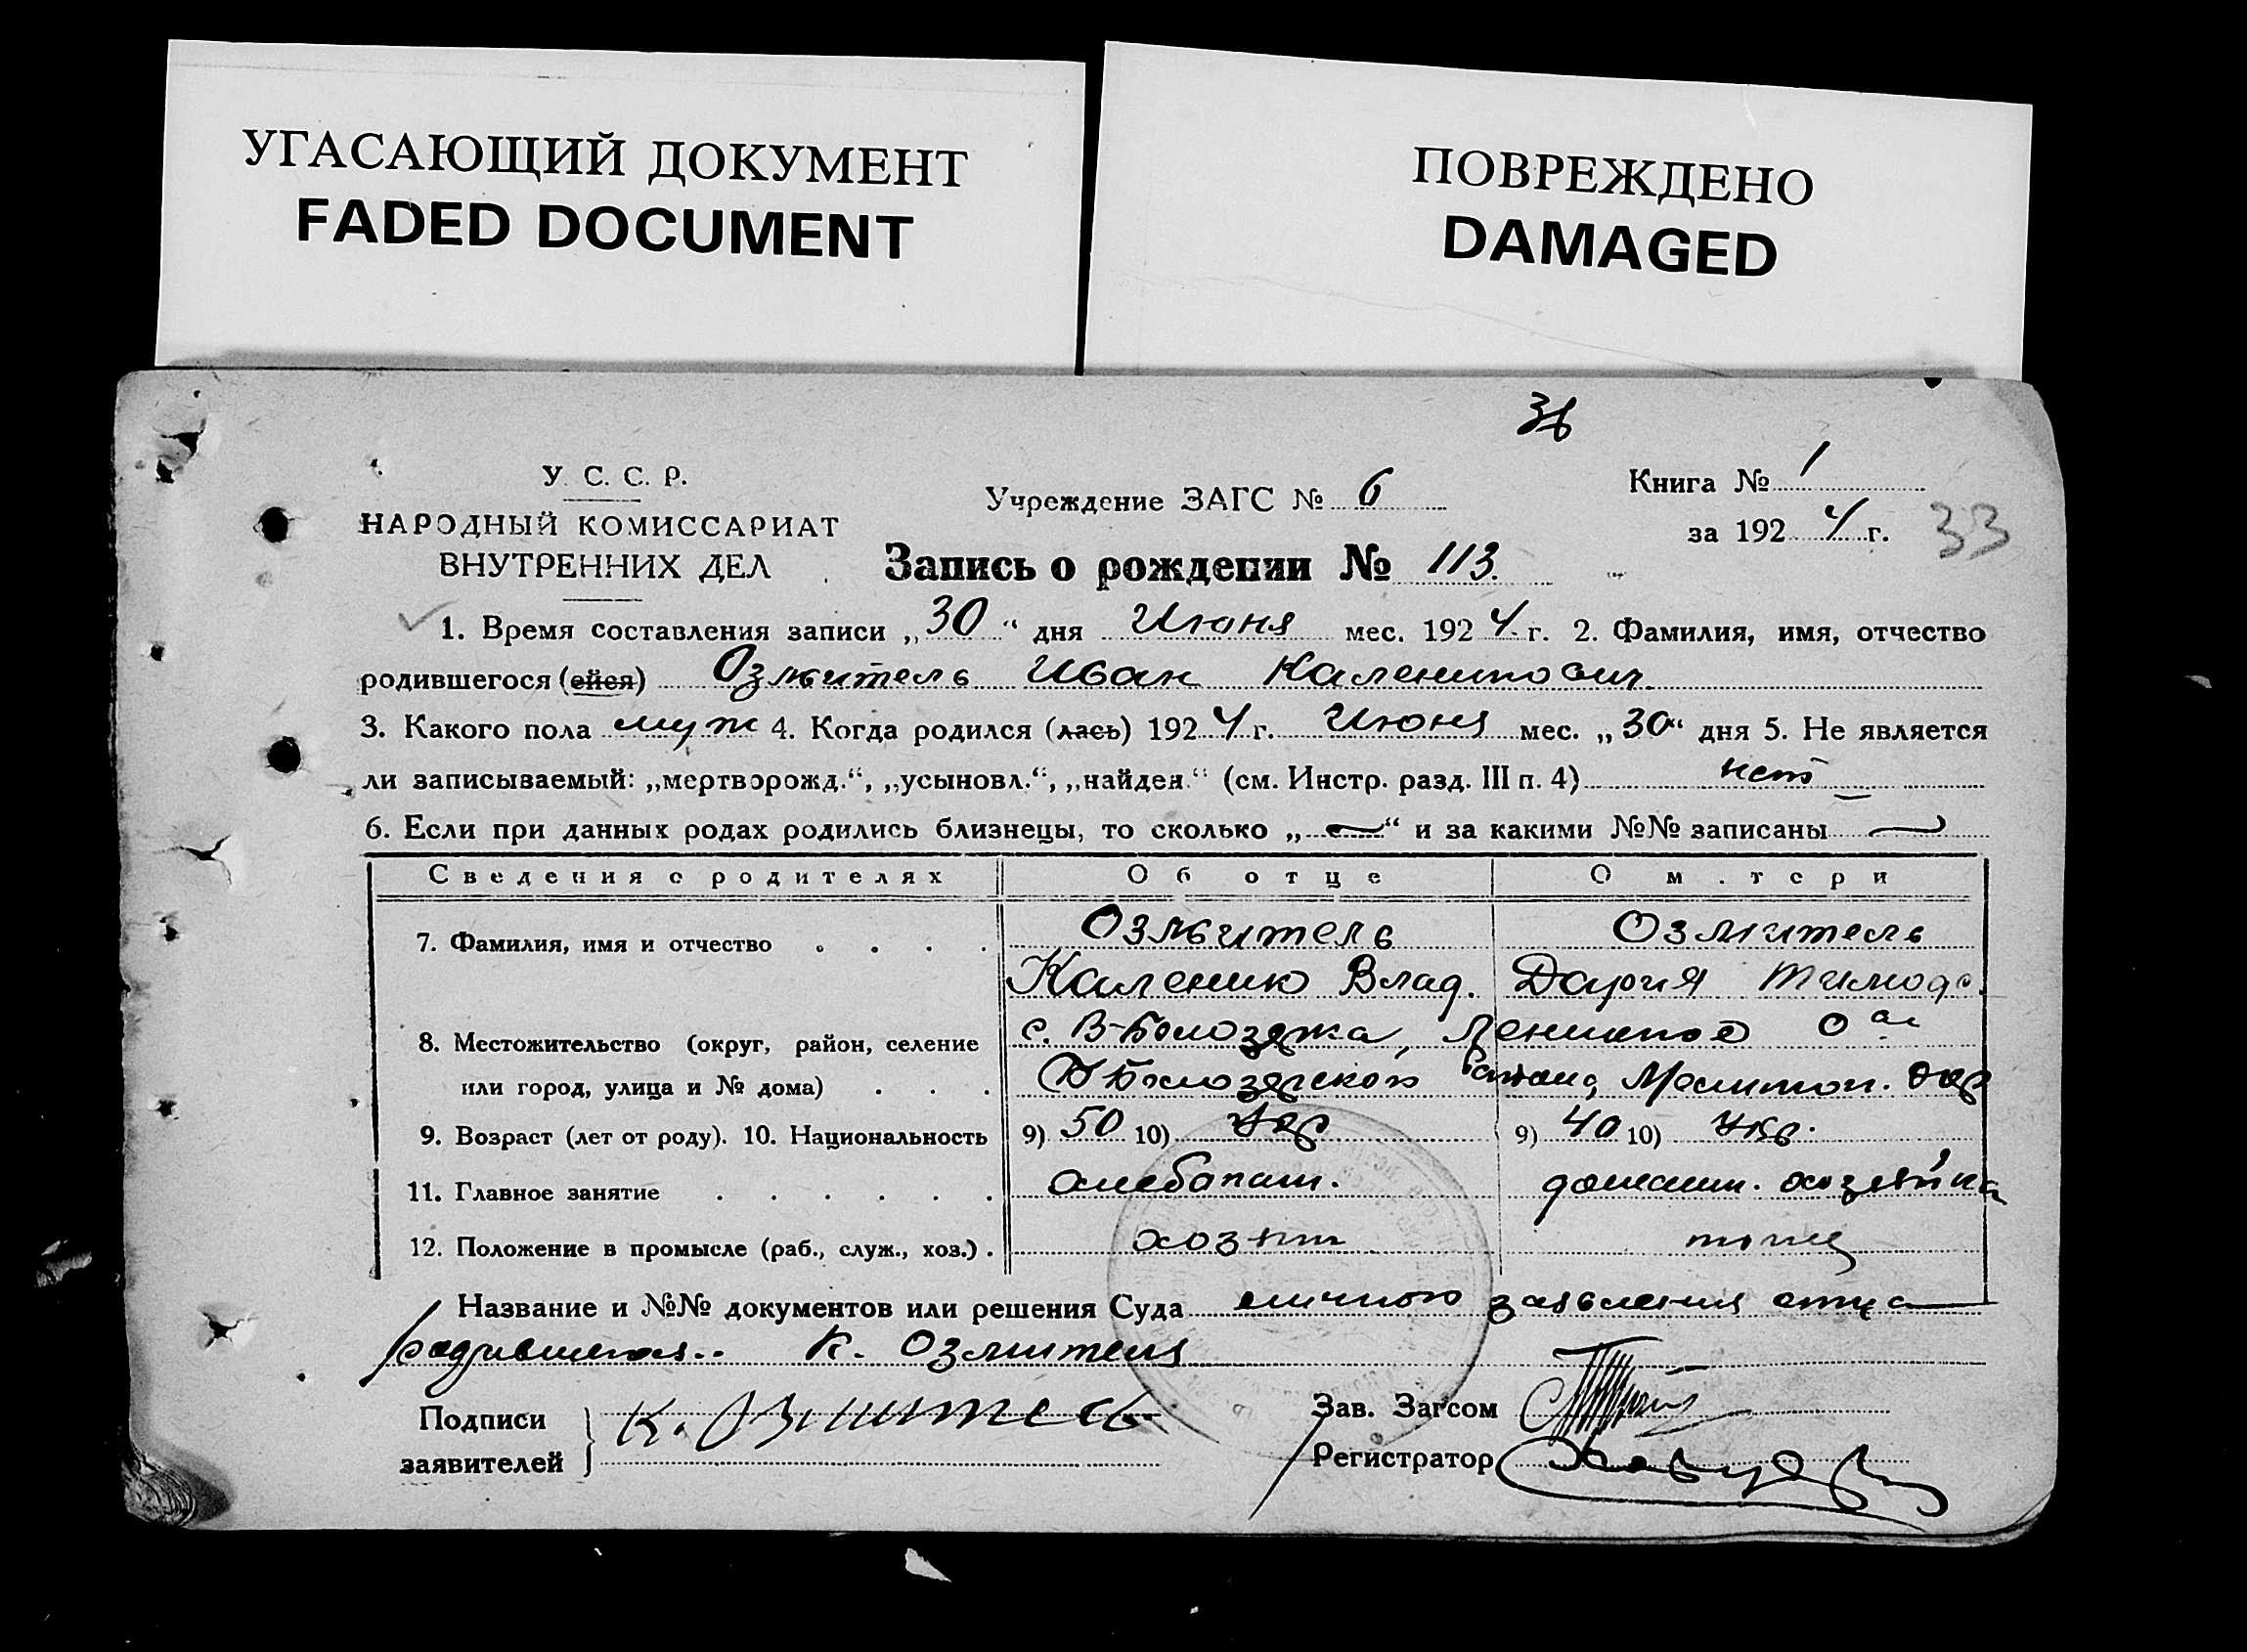 УГАСАЮЩИЙ ДОКУМЕНТ
FADED DOCUMENT
ПОВРЕЖДЕНО
DAMAGED
У. С. С. Р.
НАРОДНЫЙ КОМИССАРИАТ
ВНУТРЕННИХ ДЕЛ
Учреждение ЗАГС № 6
Книга № 1
за 1924 г. 33
Запись о рождении № 113.
1. Время составления записи „30“ дня Июня мес. 1924 г. 2. Фамилия, имя, отчество
родившегося (ейся) Озмитель Иван Каленикович
3. Какого пола муж 4. Когда родился (лась) 1924 г. Июня мес. „30“ дня 5. Не является
ли записываемый: „мертворожд.“, „усыновл.“, „найден.“ (см. Инстр. разд. III п. 4) нет
6. Если при данных родах родились близнецы, то сколько „—“ и за какими №№ записаны —
Сведения о родителях Об отце О м.тери
7. Фамилия, имя и отчество . . . . Озмитель Озмитель
Каленик Влад. Дария Тимоф.
8. Местожительство (округ, район, селение с. В-Белозерка,
или город, улица и № дома) . . . В Белозерского района, Мелитоп. окр
9. Возраст (лет от роду). 10. Национальность 9) 50 10) Укр 9) 40 10) Укр.
11. Главное занятие . . . . . . хлебопаш. домашн. хозяйка
12. Положение в промысле (раб., служ., хоз.) . хозяин
Название и №№ документов или решения Суда личного заявления отца
родившегося К. Озмителя
Подписи К. Озмитель Зав. Загсом
заявителей Регистратор